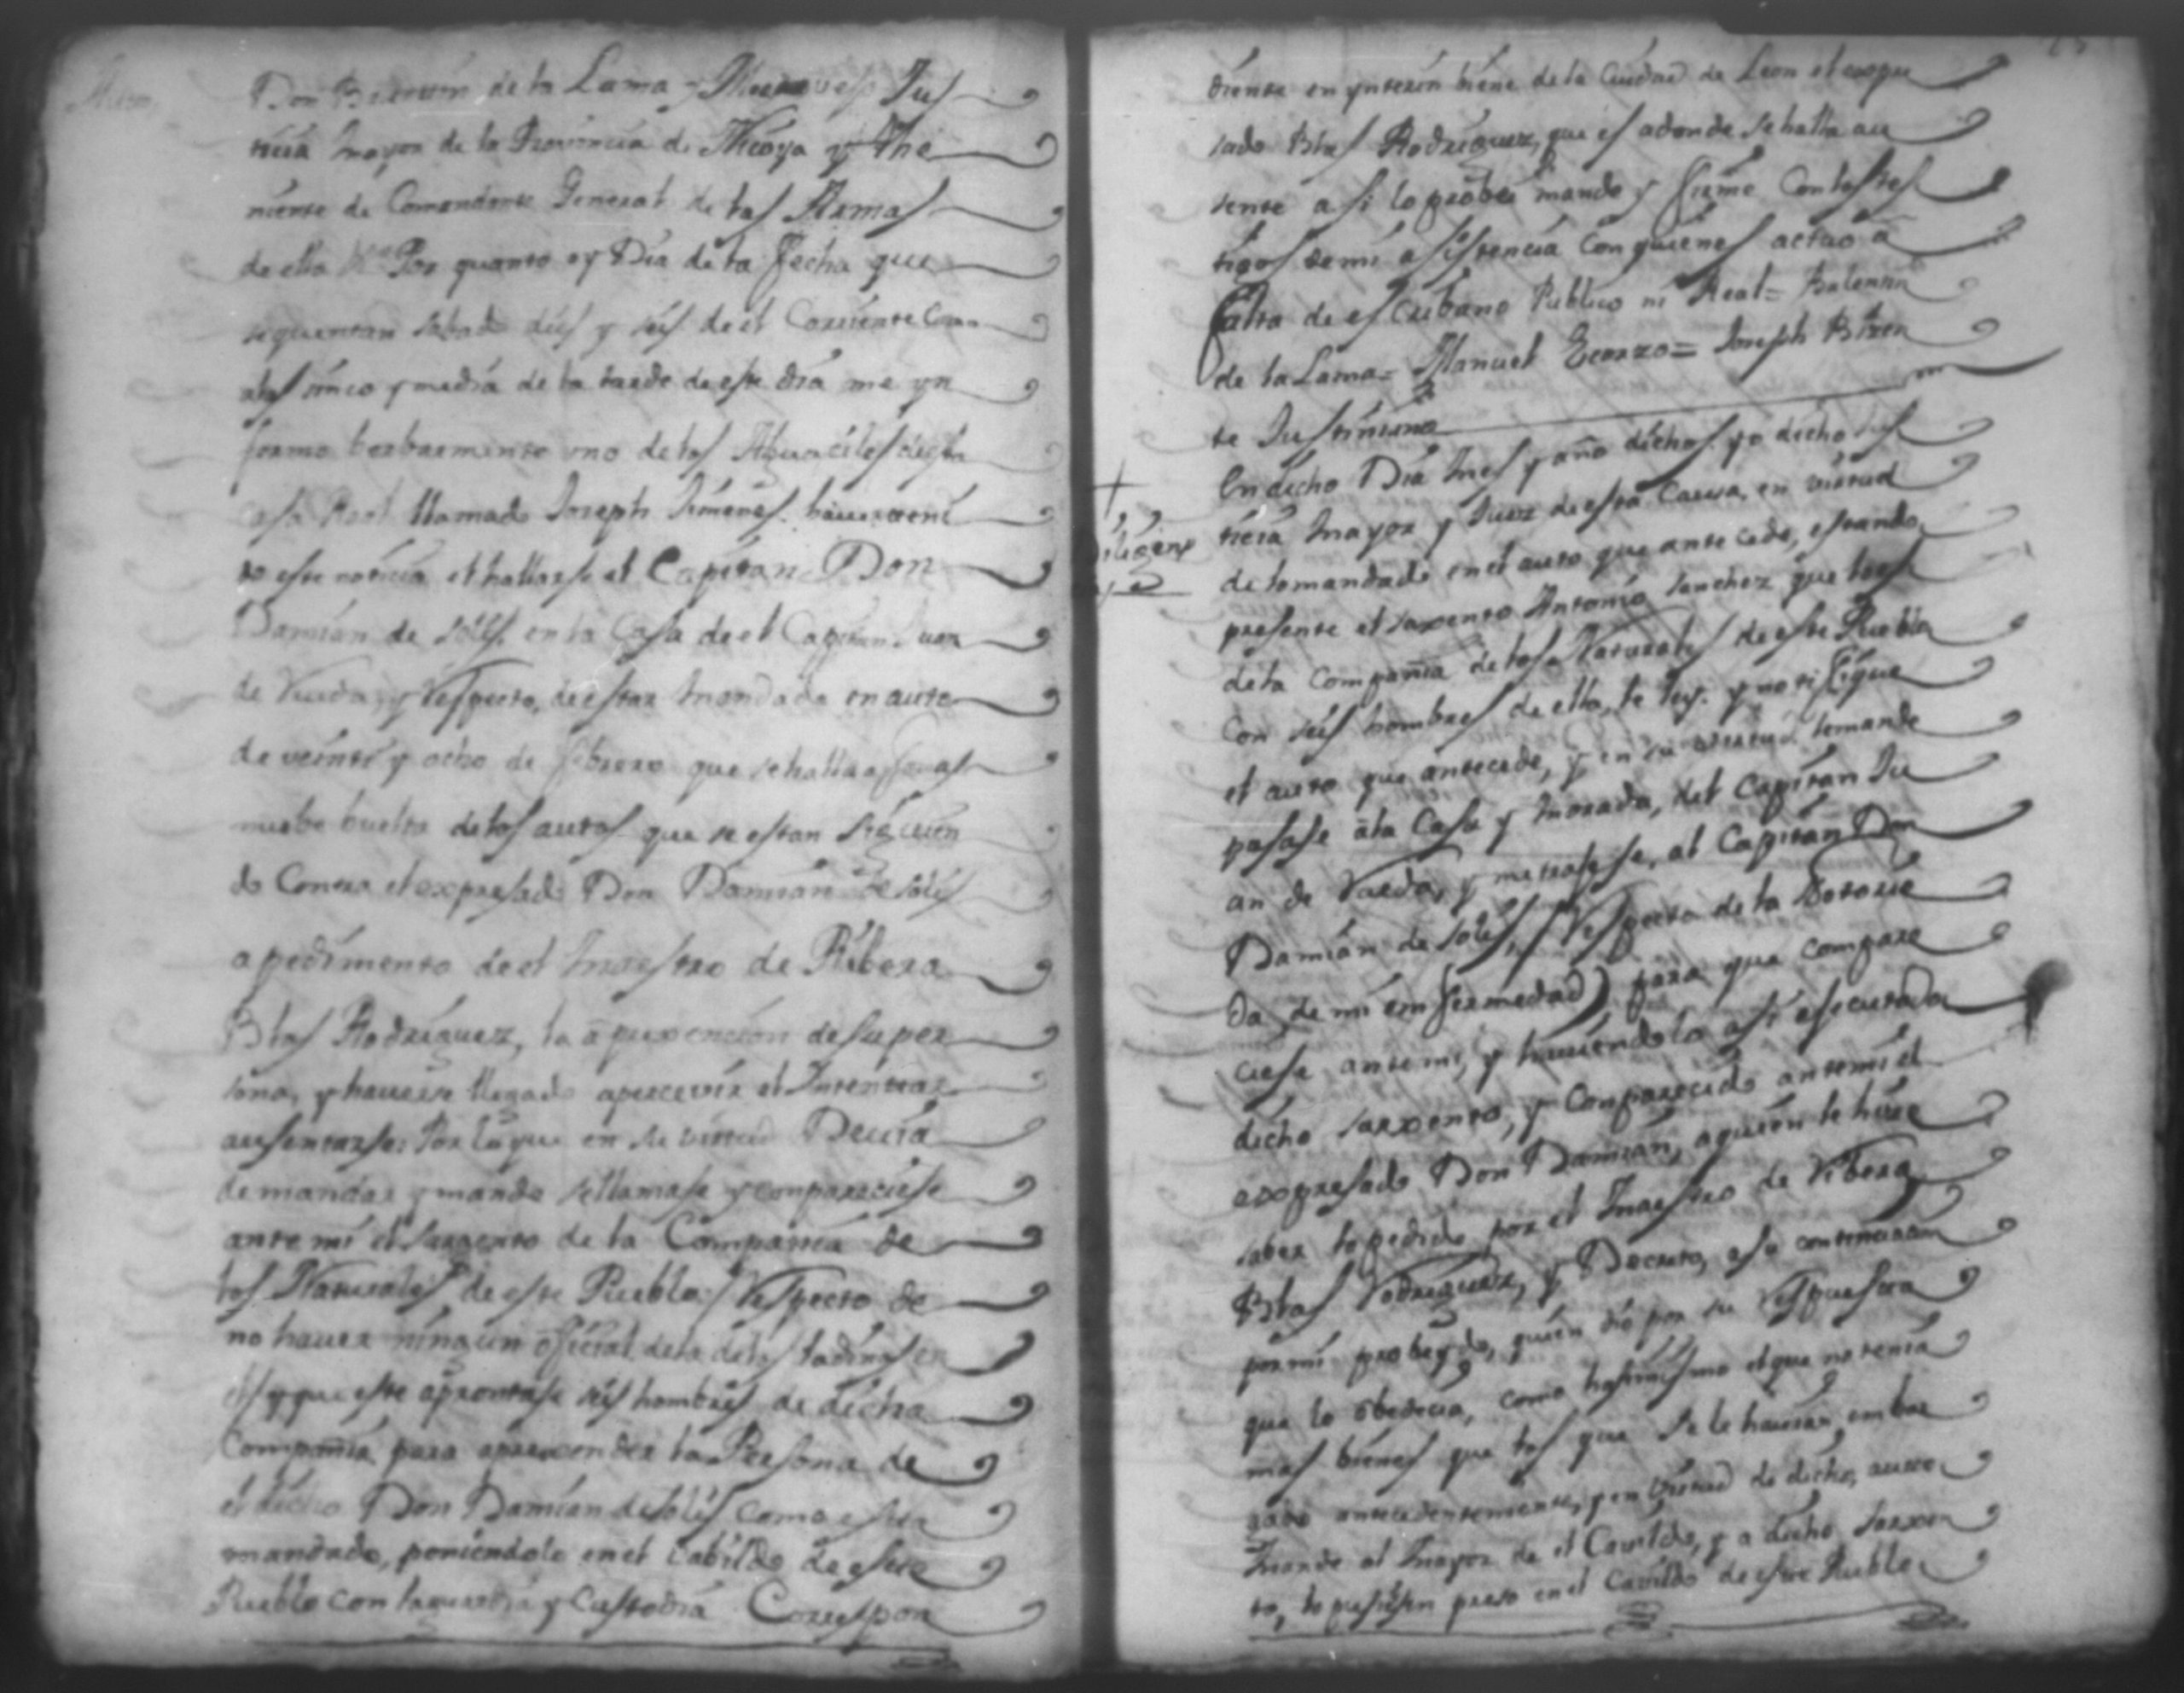 Auto
Don Balentin de la Lama y Jus
ticia mayor de la Provincia de Nicoya y The
niente de Comandante General de las Armas
de ella Por quanto oy Dia de la fecha que
sequentan sabado dies y seis de el Corriente Como
alas sinco y media de la tarde de este dia me yn
formo berbarmente uno delos Alguaciles desta
Casa Real llamado Joseph Jimenes haver teni
do este noticia el hallarse el Capitan Don
Damian de Solis en la Casa de el Capitan Juan
de Varda, y Respecto, de estar mandada en auto
de veinte y ocho de febrero que sehalla a foxas
nuebe buelta delos autos que se estan siguien
do Contra el expresado Don Damian de Solis
a pedimento de el maestro de Ribera
Blas Rodriguez, la aprexencion de su per
sona, y haverse llegado apercevir el Intentar
ausentarse; Por lo que en su virtud Devia
demandar y mando sellamase y compareciese
ante mi el Sargento de la Compañia de
los Naturales de este Pueblo / Respecto de
no haver ningun oficial dela delos ladinos en
el / y que este aprontase seis hombres de dicha
Compañia para aprexender la Persona de
el dicho Don Damian de Solis como esta
mandado, poniendolo en el Cabildo de este
Pueblo con la guardia y Custodia Correspon
diente en ynterin biene de la Ciudad de Leon el expre
sado Blas Rodriguez, que es adonde sehalla au
sente a si lo probei mande y firme Con testes
tigos de mi asistencia Con quienes actuo a
falta de escribano Publico ni Real = Balentin
de la Lama = Manuel = Joseph Bisen
te Justiniano
Diligencia
En dicho Dia mes y año dichos. yo dicho Jus
ticia mayor y Juez de esta Causa, en virtud
de lo mandado en el auto que antecede, estando
presente el sarxento Antonio Sanchez que lo es
dela Compañia de los Naturales de este Pueblo
Con seis hombres de ella, le ley. y notifique
el auto que antecede, y en su virtud lemande
pasase ala Casa y morada, del Capitan Ju
an de Varda, y metrajese, al Capitan Don
Damian de Solis, / Respecto de la Notorie
da, de mi enfermedad) para que compare
ciese ante mi, y haviendolo asi esecutado
dicho sarxento, y Comparecido ante mi el
expresado Don Damian, a quien le hise
saber lo pedido por el maestro de Ribera
Blas Rodriguez, y Decreto, a su continuacion
por mi probeydo, quien dio por su Respuesta
que lo obedecia, como hasimismo el que no tenia
mas bienes que los que se le havian embar
gado antecedentemente, y en virtud de dicho, auto
mande al mayor de el Cavildo, y a dicho sarxen
to, lo pusiesen preso en el Cavildo de este Pueblo